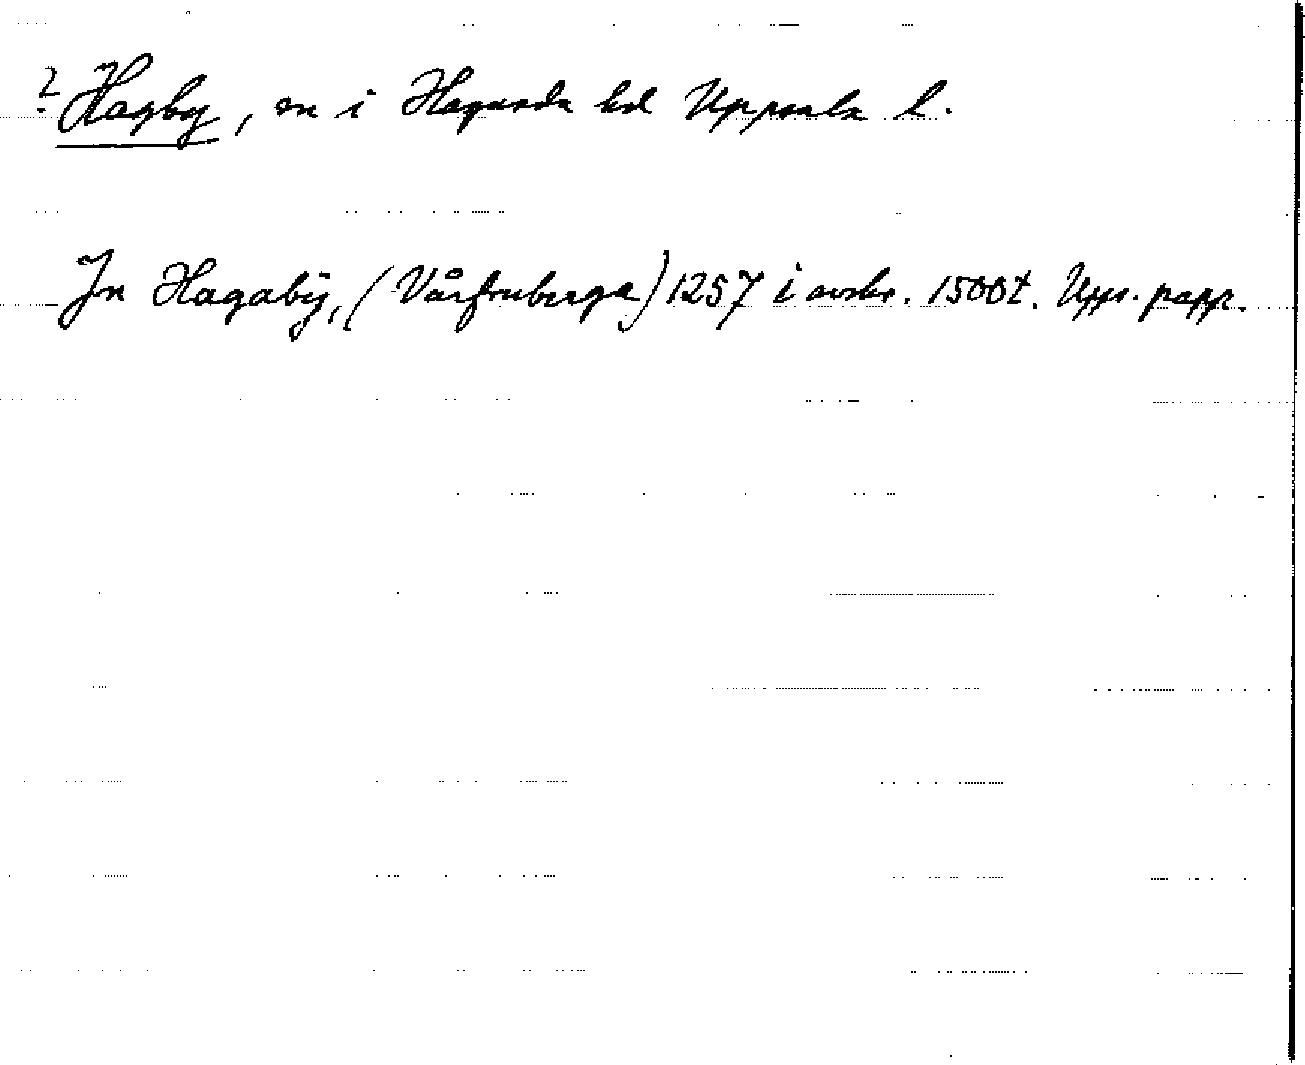 ? Hagby, sn i Hagunda hd Uppsala l.
In Hagabÿ, (Vårfruberga) 1257 i avskr. 1500t. Upps. papp.